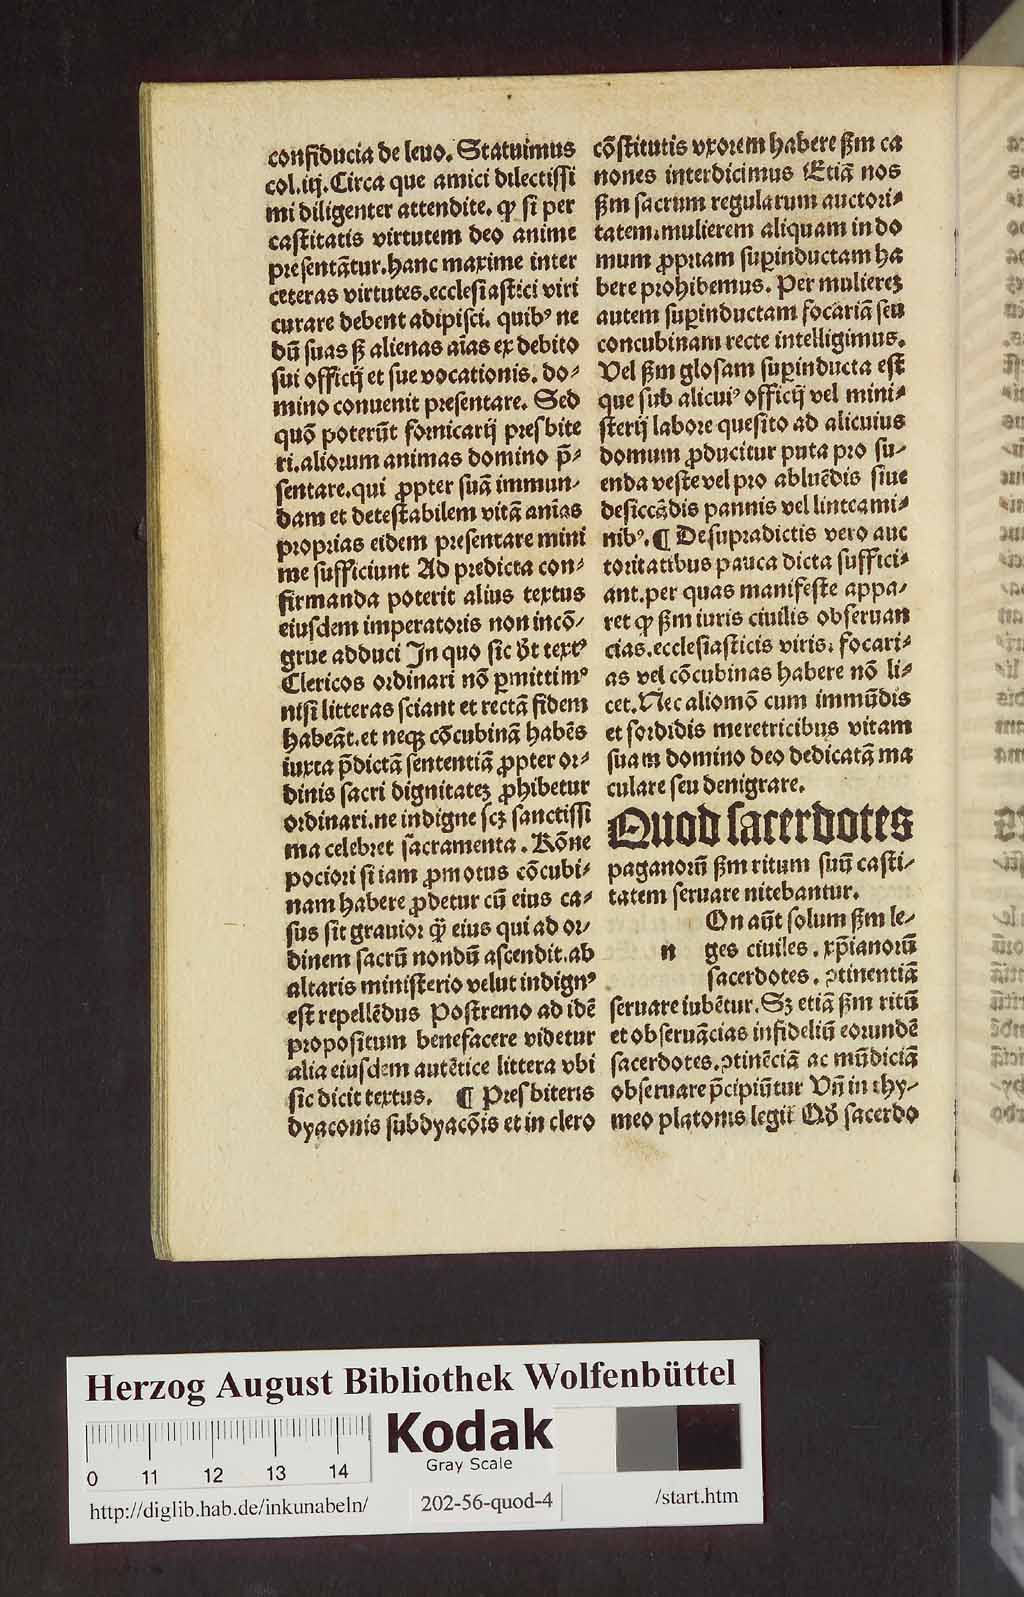 confiducia de leuo. Statuimus
col.iij. Circa que amici dilectissi
mi diligenter attendite. ꝙ si per
castitatis virtutem deo anime
presentãtur. hanc maxime inter
ceteras virtutes. ecclesiastici viri
curare debent adipisci. quibꝰ ne
dũ suas ß alienas aĩas ex debito
sui officij et sue vocationis. do⸗
mino conuenit presentare. Sed
quõ poterũt fornicarij presbite
ri. aliorum animas domino p̃⸗
sentare. qui ꝓpter suã immun⸗
dam et detestabilem vitã anĩas
proprias eidem presentare mini
me sufficiunt Ad predicta con⸗
firmanda poterit alius textus
eiusdem imperatoris non incõ⸗
grue adduci In quo sic dr̃ textꝰ
Clericos ordinari nõ ꝑmittimꝰ
nisi litteras sciant et rectã fidem
habeãt. et neqꝫ cõcubinã habẽs
iuxta p̃dictã sententiã ꝓpter or⸗
dinis sacri dignitateꝫ ꝓhibetur
ordinari. ne indigne scꝫ sanctissi
ma celebret sacramenta. Rõne
pociori si iam ꝓmotus cõcubi⸗
nam habere ꝓdetur cũ eius ca⸗
sus sit grauior ꝙ̃ eius qui ad or⸗
dinem sacrũ nondũ ascendit. ab
altaris ministerio velut indignꝰ
est repellẽdus Postremo ad idẽ
propositum benefacere videtur
alia eiusdem autẽtice littera vbi
sic dicit textus. ¶ Presbiteris
dyaconis subdyacõis et in clero
cõstitutis vxorem habere ẜm ca
nones interdicimus Etiã nos
ẜm sacrum regularum auctori⸗
tatem. mulierem aliquam in do
mum ꝓpriam suꝑinductam ha
bere prohibemus. Per mulierez
autem suꝑinductam focariã seu
concubinam recte intelligimus.
Vel ẜm glosam suꝑinducta est
que sub alicuiꝰ officij vel mini⸗
sterij labore quesito ad alicuius
domum ꝓducitur puta pro su⸗
enda veste vel pro abluẽdis siue
desiccãdis pannis vel linteami⸗
nibꝰ. ¶ De supradictis vero auc
toritatibus pauca dicta suffici⸗
ant. per quas manifeste appa⸗
ret ꝙ ẜm iuris ciuilis obseruan
cias. ecclesiasticis viris. focari⸗
as vel cõcubinas habere nõ li⸗
cet. Nec aliomõ cum immũdis
et sordidis meretricibus vitam
suam domino deo dedicatã ma
culare seu denigrare.
Quod sacerdotes
paganorũ ẜm ritum suũ casti⸗
tatem seruare nitebantur.
On aũt solum ẜm le⸗
n ges ciuiles. xp̃ianorũ
sacerdotes. ꝯtinentiã
seruare iubẽtur. Sꝫ etiã ẜm ritũ
et obseruãcias infideliũ eorundẽ
sacerdotes. ꝯtinẽciã ac mũdiciã
obseruare p̃cipiũtur Vñ in thy⸗
meo platonis legit̃ Qđ sacerdo
Herzog August Bibliothek Wolfenbüttel
Kodak
Gray Scale
0 11 12 13 14
http://diglib.hab.de/inkunabeln/ 202-56-quod-4 /start.htm